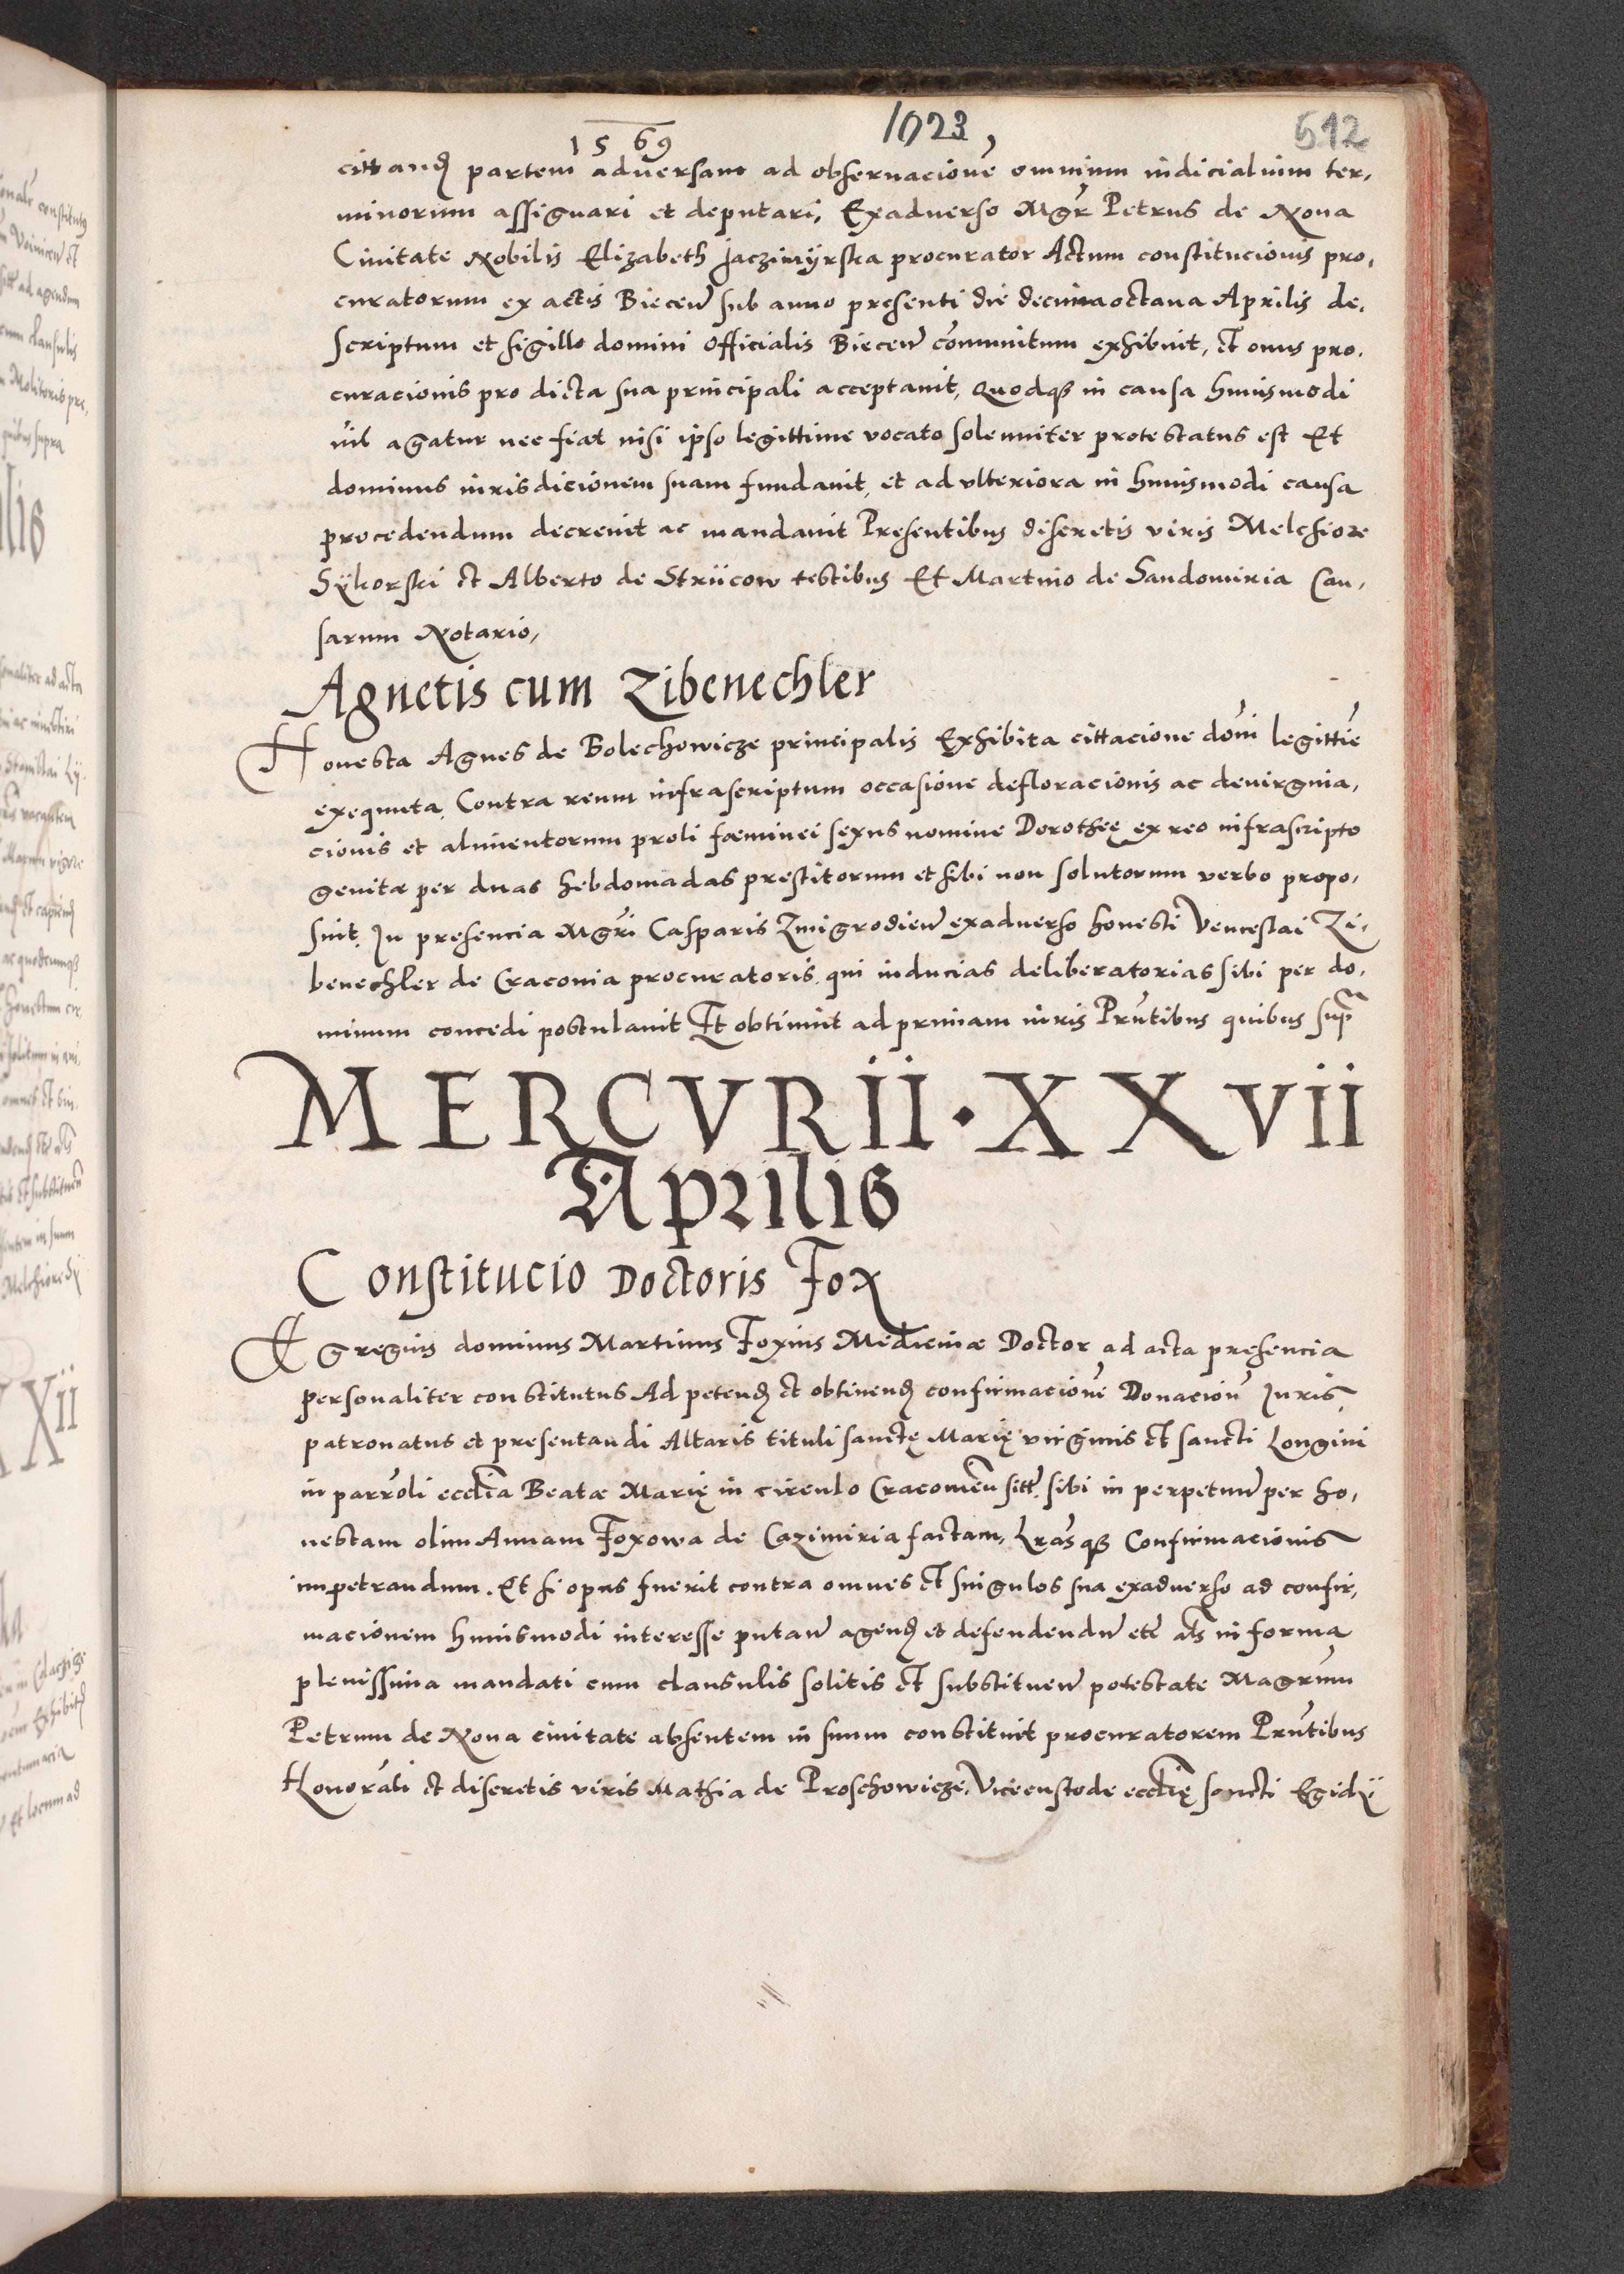 1569 1023 512
cittand partem adversam ad observacionē omnium iudicialium ter,
minorum assignari et deputari, Exadverso Mgr̄ Petrus de Nova
Civitate Nobilis Elizabeth Jaczimÿrska procurator Actum constitucionis pro,
curatorum ex actis Biecen̄ sub anno presenti die decimaoctava Aprilis de,
scriptum et sigillo domini Officialis Biecen̄ cōmunitum exhibuit, et onus pro,
curacionis pro dicta sua principali acceptavit, Quodq3 in causa huiusmodi
nil agatur nec fiat nisi ipso legittime vocato solenniter protestatus est Et
dominus iurisdicionem suam fundavit, et ad ulteriora in huiusmodi causa
procedendum decrevit ac mandavit Presentibus discretis viris Melchiore
Sÿkorski et Alberto de Strÿcow testibus Et Martino de Sandomiria Cau,
sarum Notario,
Agnetis cum Zibenechler
Honesta Agnes de Bolechowicze principalis Exhibita cittacione domī legittīe
exequuta, Contra reum infrascriptum occasione defloracionis ac devirgina,
cionis et alimentorum proli fœminei sexus nomine Dorotheę ex reo infrascripto
genitæ per duas hebdomadas prestitorum et sibi non solutorum verbo propo,
suit, In presencia Mgrī Casparis Zmigrodien̄ exadverso honesti Venceslai Zi,
benechler de Cracovia procuratoris, qui inducias deliberatorias sibi per do,
minum concedi postulavit Et obtinuit ad primam iuris Prn̄tibus quibus sup̄
MERCVRII · XXVII
Aprilis
Constitucio Doctoris Fox
Egregius dominus Martinus Foxius Medicinæ Doctor ad acta presencia
personaliter constitutus Ad petend et obtinend confirmacionē Donacion̄ Iuris,
patronatus et presentandi Altaris tituli sanctę Marię virginis et sancti Longini
in parrōli eccl̄ia Beatæ Marię in circulo Cracovien̄ sitt̄ sibi in perpetuū per ho,
nestam olim Annam Foxowa de Cazimiria factam, Lr̄asq3 Confirmacionis
impetrandum. Et si opus fuerit contra omnes et singulos sua exadverso ad confir,
macionem huiusmodi interesse putan̄ agend et defendendū etc̄ al̄s in forma
plenissima mandati cum clausulis solitis et substituen̄ potestate Magr̄um
Petrum de Nova civitate absentem in suum constituit procuratorem Prn̄tibus
Honorāli et discretis viris Mathia de Proschowicze, Vicecustode eccl̄ię sancti Egidÿ